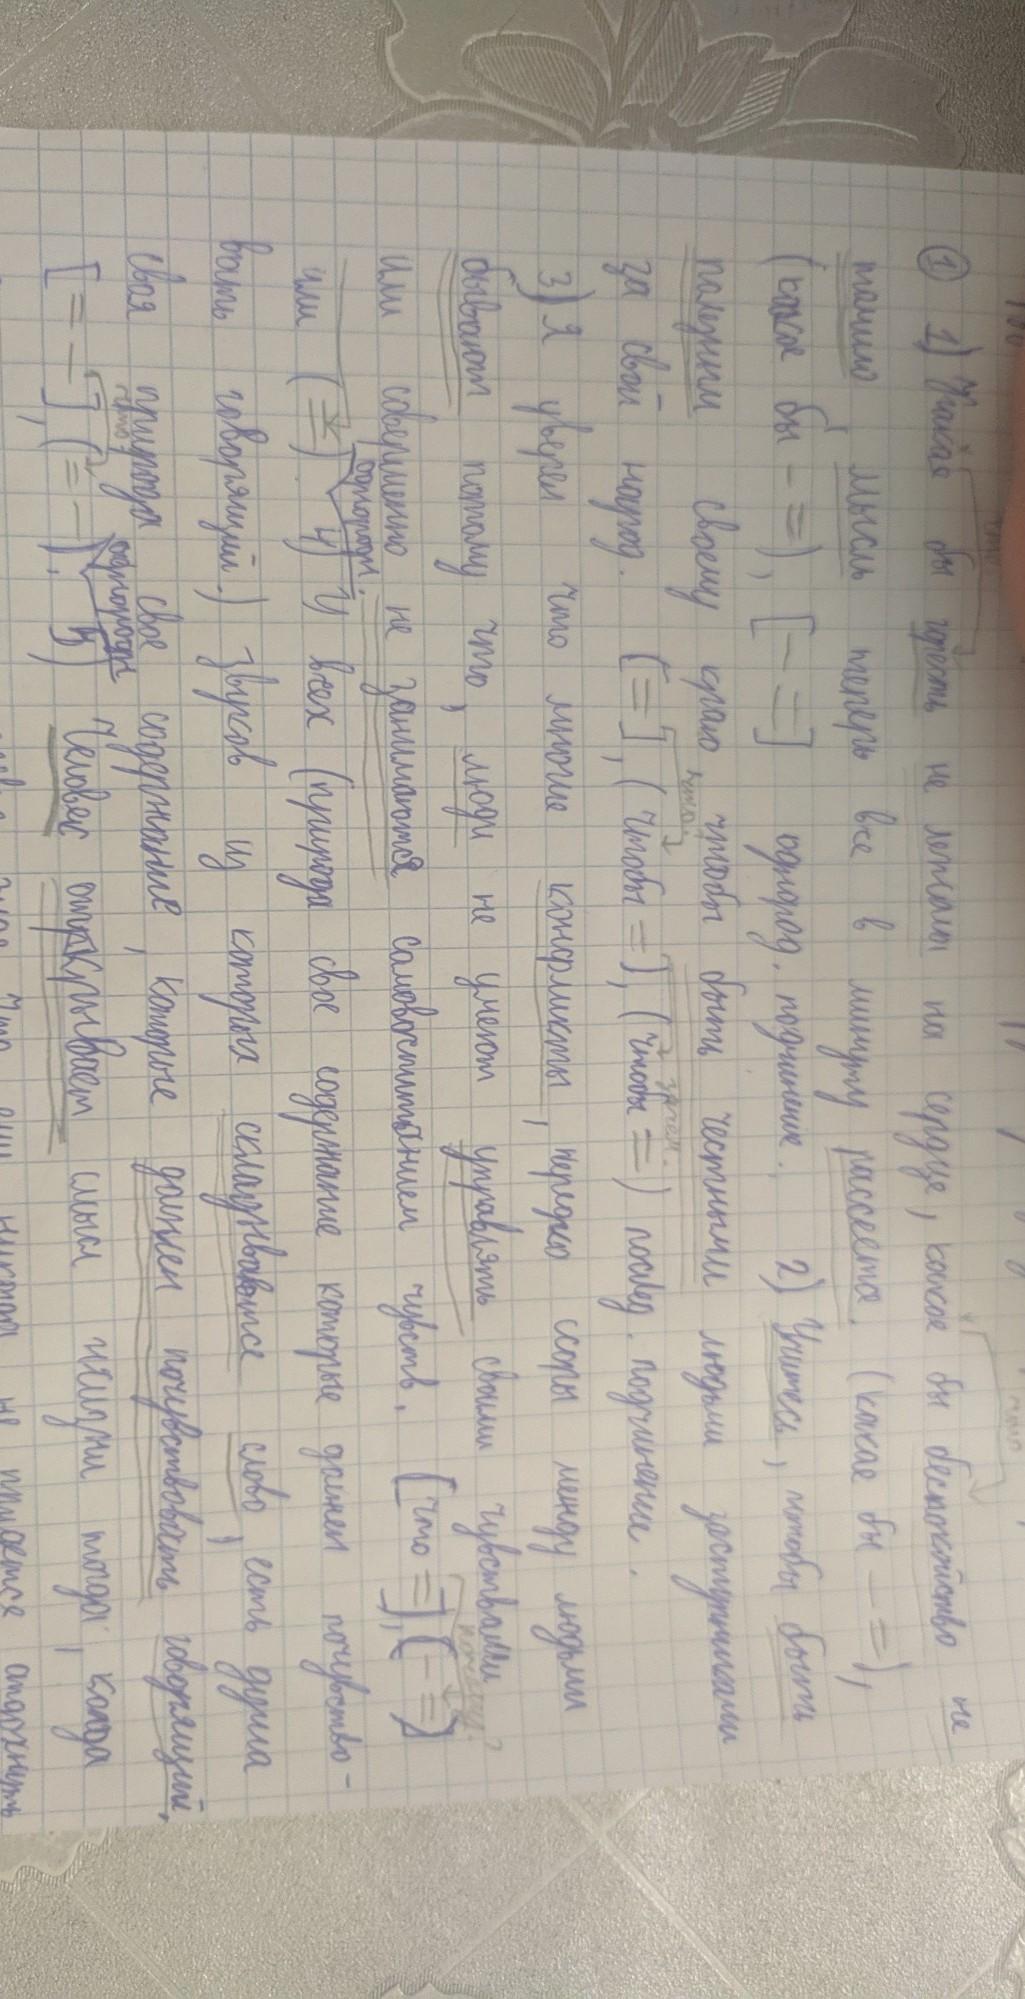 ① 1) Какая бы горесть не лежала на сердце, какое бы беспокойство не
томило мысль теперь все в минуту рассеется. (какая бы - =),
(какое бы - =), [- =] однород. подчинение. 2) Учитесь, чтобы быть
полезными своему краю чтобы быть честными людьми заступниками
за свой народ. [=], (чтобы =), (чтобы =) послед. подчинени.
3) Я уверен что многие конфликты, нередко ссоры между людьми
бывают потому что, люди не умеют управлять своими чувствами
или совершенно не занимаются самовоспитанием чувств. [что =], (- =)
или (=) однородн. 4) У всех (природа свое содержание которые должен почувство-
вать говорящий.) звуков из которых складывается слово, есть душа
своя природа свое содержание, которые должен почувствовать говорящий,
[= -], (= -). однородн 5) Человек открывает смысл жизни тогда, когда